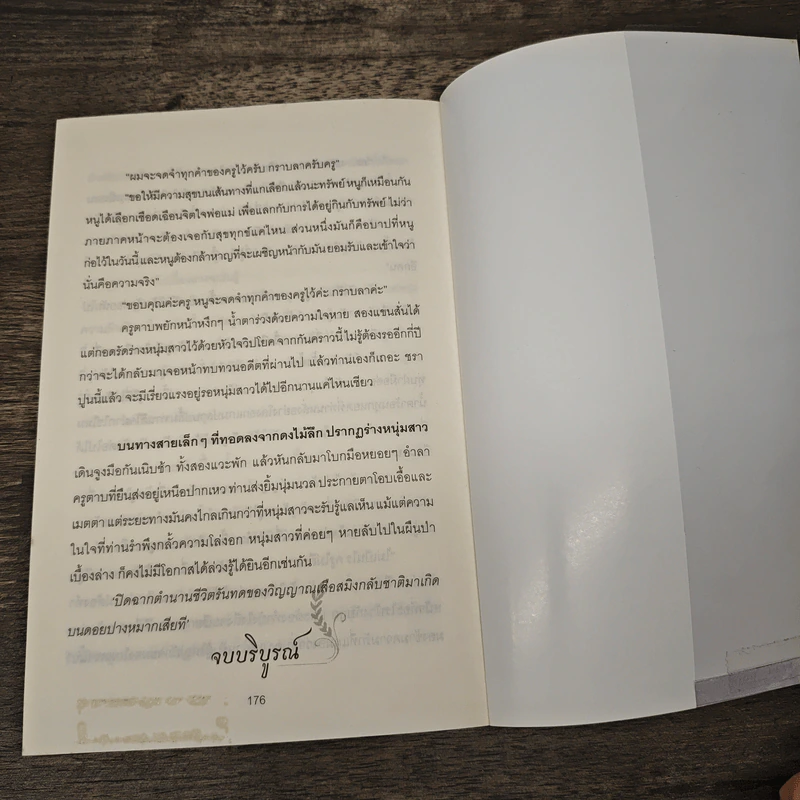 "ผมจะจดจำทุกคำของครูไว้ครับ กราบลาครับครู"
"ขอให้มีความสุขบนเส้นทางที่แกเลือกแล้วนะทรัพย์ หนูก็เหมือนกัน
หนูได้เลือกเชือดเฉือนจิตใจพ่อแม่ เพื่อแลกกับการได้อยู่กินกับทรัพย์ ไม่ว่า
ภายภาคหน้าจะต้องเจอกับสุขทุกข์แค่ไหน ส่วนหนึ่งมันก็คือบาปที่หนู
ก่อไว้ในวันนี้ และหนูต้องกล้าหาญที่จะเผชิญหน้ากับมัน ยอมรับและเข้าใจว่า
นั่นคือความจริง"
"ขอบคุณค่ะครู หนูจะจดจำทุกคำของครูไว้ค่ะ กราบลาค่ะ"
ครูตาบพยักหน้าหงึกๆ น้ำตาร่วงด้วยความใจหาย สองแขนสั่นได้
แต่กอดรัดร่างหนุ่มสาวไว้ด้วยหัวใจวิปโยค จากกันคราวนี้ไม่รู้ต้องรออีกกี่ปี
กว่าจะได้กลับมาเจอหน้าทบทวนอดีตที่ผ่านไป แล้วท่านเองก็เถอะ ชรา
ปูนนี้แล้ว จะมีเรี่ยวแรงอยู่รอหนุ่มสาวได้ไปอีกนานแค่ไหนเชียว
บนทางสายเล็กๆ ที่ทอดลงจากดงไม้ลึก ปรากฏร่างหนุ่มสาว
เดินจูงมือกันเนิบช้า ทั้งสองแวะพัก แล้วหันกลับมาโบกมือหยอยๆ อำลา
ครูตาบที่ยืนส่งอยู่เหนือปากเหว ท่านส่งยิ้มนุ่มนวล ประกายตาโอบเอื้อและ
เมตตา แต่ระยะทางมันคงไกลเกินกว่าที่หนุ่มสาวจะรับรู้แลเห็น แม้แต่ความ
ในใจที่ท่านรำพึงกลั้วความโล่งอก หนุ่มสาวที่ค่อยๆ หายลับไปในผืนป่า
เบื้องล่าง ก็คงไม่มีโอกาสได้ล่วงรู้ได้ยินอีกเช่นกัน
'ปิดฉากตำนานชีวิตรันทดของวิญญาณเสือสมิงกลับชาติมาเกิด
บนดอยปางหมากเสียที'
จบบริบูรณ์
176